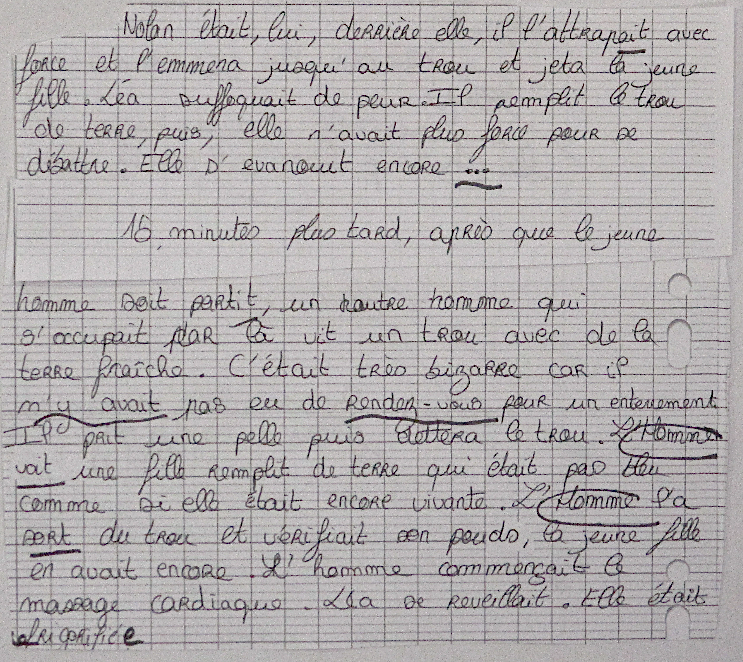 Nolan était, lui, derrière elle, il l'attrapait avec
force et l'emmena jusqu'au trou et jeta la jeune
fille. Léa suffoquait de peur. Il remplit le trou
de terre, puis, elle n'avait plus force pour se
débattre. Elle s'evanouit encore ...
15 minutes plus tard, après que le jeune
homme soit partit, un hautre homme qui
s'occupait par là vit un trou avec de la
terre fraîche. C'était très bizarre car il
n'y avait pas eu de rendez-vous pour un enterrement
Il prit une pelle puis détera le trou. L'Homme
voit une fille remplit de terre qui était pas bleu
comme si elle était encore vivante. L'Homme l'a
sort du trou et vérifiait son pouds, la jeune fille
en avait encore. L'homme commençait le
massage cardiaque. Léa se reveillait. Elle était
frigorifiée